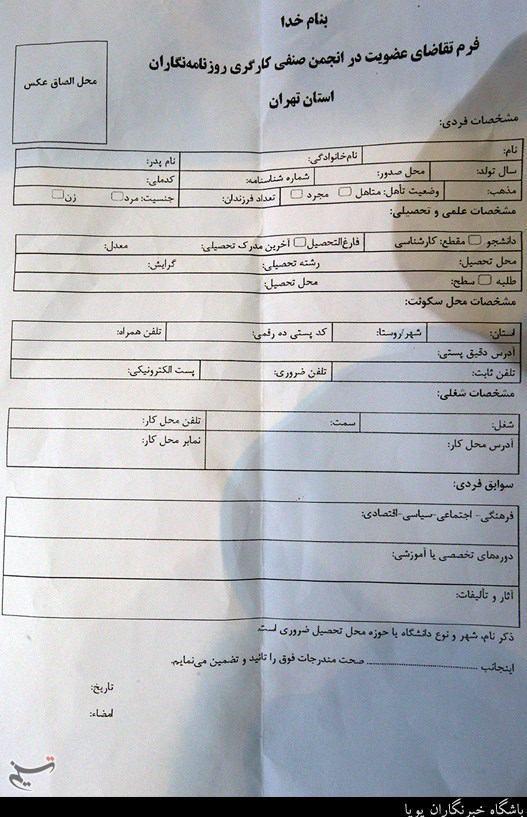 بنام خدا
فرم تقاضای عضویت در انجمن صنفی کارگری روزنامه‌نگاران
استان تهران
محل الصاق عکس
مشخصات فردی:
نام: نام‌خانوادگی: نام پدر:
سال تولد: محل صدور: شماره شناسنامه: کدملی:
مذهب: وضعیت تأهل: متاهل مجرد تعداد فرزندان: جنسیت: مرد زن
مشخصات علمی و تحصیلی:
دانشجو مقطع: کارشناسی فارغ‌التحصیل آخرین مدرک تحصیلی: معدل:
محل تحصیل: رشته تحصیلی: گرایش:
طلبه سطح: محل تحصیل:
مشخصات محل سکونت:
استان: شهر/روستا: کد پستی ده رقمی: تلفن همراه:
آدرس دقیق پستی:
تلفن ثابت: تلفن ضروری: پست الکترونیکی:
مشخصات شغلی:
شغل: سمت: تلفن محل کار:
آدرس محل کار: نمابر محل کار:
سوابق فردی:
فرهنگی- اجتماعی-سیاسی-اقتصادی:
دوره‌های تخصصی یا آموزشی:
آثار و تألیفات:
ذکر نام، شهر و نوع دانشگاه یا حوزه محل تحصیل ضروری است.
اینجانب .................................... صحت مندرجات فوق را تائید و تضمین می‌نمایم.
تاریخ:
امضاء:
تسنیم
باشگاه خبرنگاران پویا